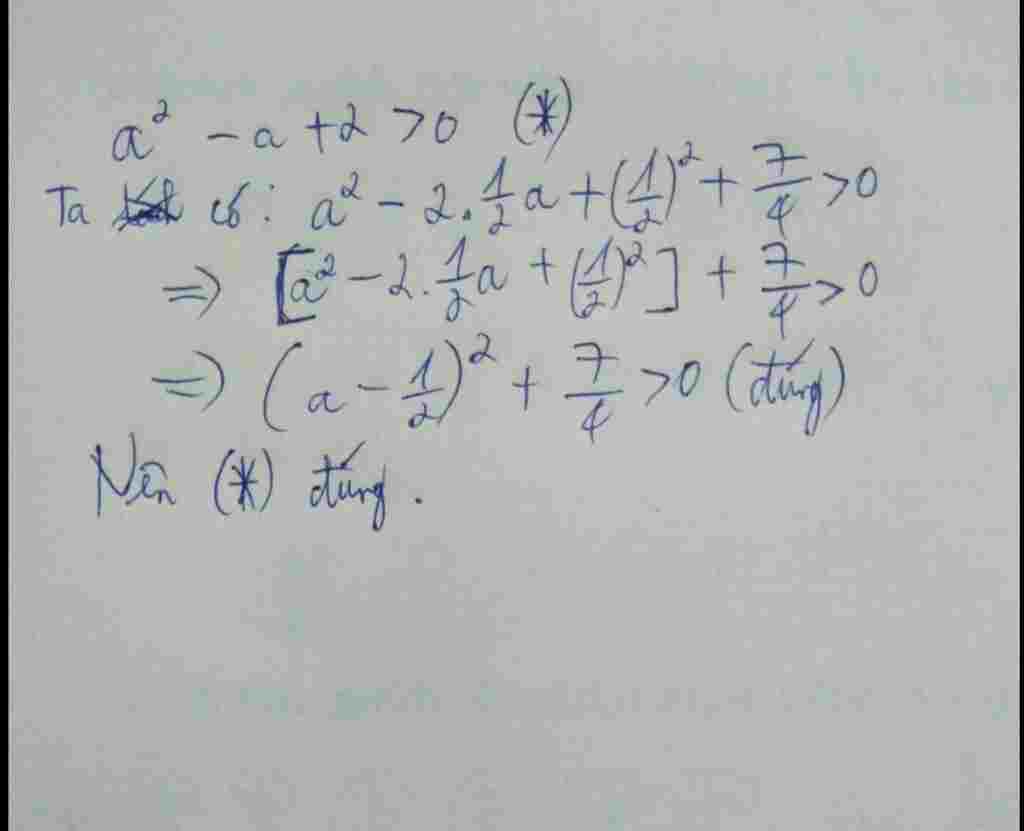 a² - a + 2 > 0 (*)
Ta có: a² - 2.\frac{1}{2}a + (\frac{1}{2})² + \frac{7}{4} > 0
=> [a² - 2.\frac{1}{2}a + (\frac{1}{2})²] + \frac{7}{4} > 0
=> (a - \frac{1}{2})² + \frac{7}{4} > 0 (đúng)
Nên (*) đúng.